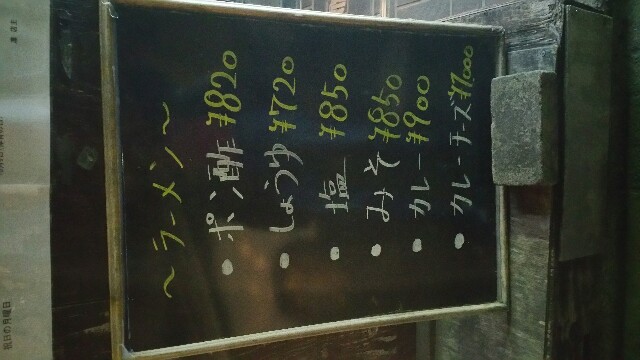 〜ラーメン〜
・ポン酢 ¥820
・しょうゆ ¥720
・塩 ¥850
・みそ ¥850
・カレー ¥900
・カレーチーズ ¥1000
祝日の月曜日